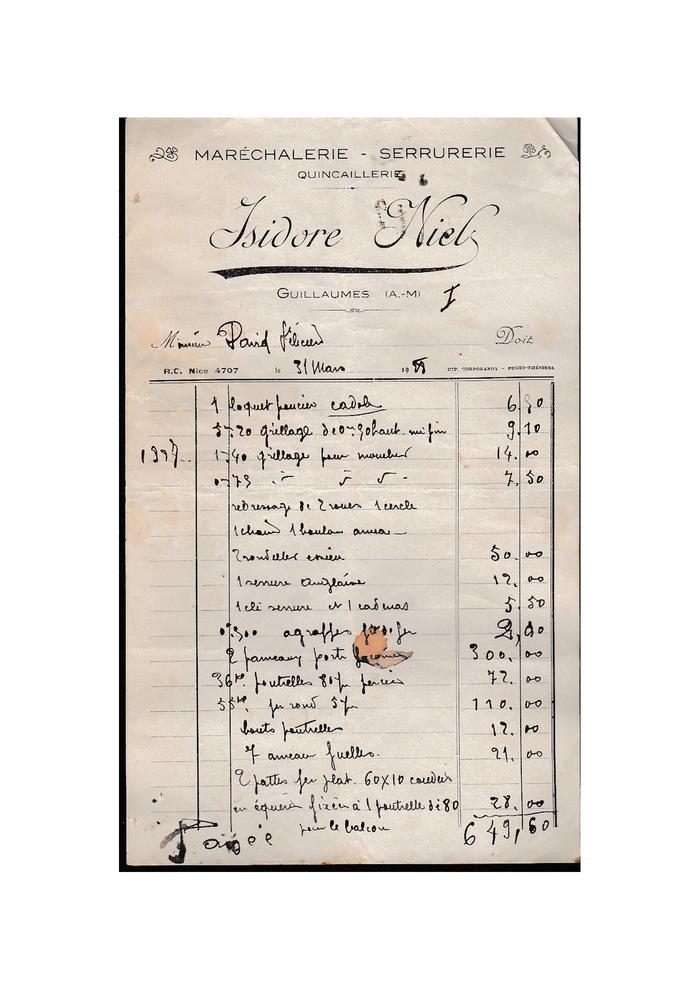 MARÉCHALERIE - SERRURERIE
QUINCAILLERIE
Isidore Niel
GUILLAUMES (A.-M) I
Monsieur David Félicien Doit
R.C. Nice 4707 le 31 Mars 19 IMP. CORPORANDY - PUGET-THÉNIERS
1 loquet poucier cadole 6.50
5m20 grillage de 0m50 haut. mi fin 9.10
1937. 1m40 grillage pour mouches 14.00
0m75 7.50
redressage de 2 roues 1 cercle
1 boulon anneau
2 rondelles essieu 50.00
1 serrure anglaise 12.00
1 clé serrure et 1 cadenas 5.50
agraffes 2,00
2 panneaux porte 300.00
36k poutrelles 80 percées 72.00
55k fer rond 110.00
bouts poutrelles 12.00
7 anneaux 21.00
2 pattes fer plat. 60X10 coudées
en équerre fixées à 1 poutrelle de 80 28.00
pour le balcon 649,60
Payée